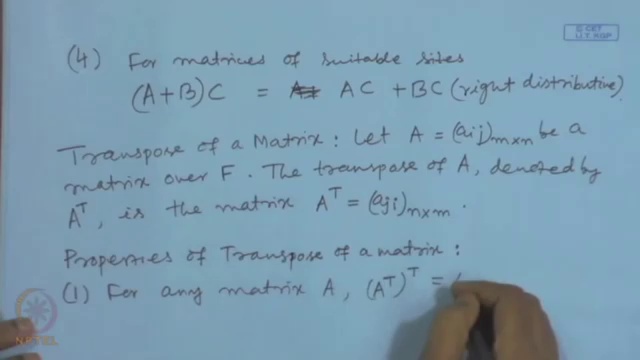 © CET
I.I.T. KGP
(4) For matrices of suitable sites
(A+B)C = AC + BC (right distributive)
Transpose of a Matrix : Let A = (aij)m×n be a
matrix over F. The transpose of A, denoted by
A^T, is the matrix A^T = (aji)n×m.
Properties of Transpose of a matrix :
(1) For any matrix A, (A^T)^T =
NPTEL